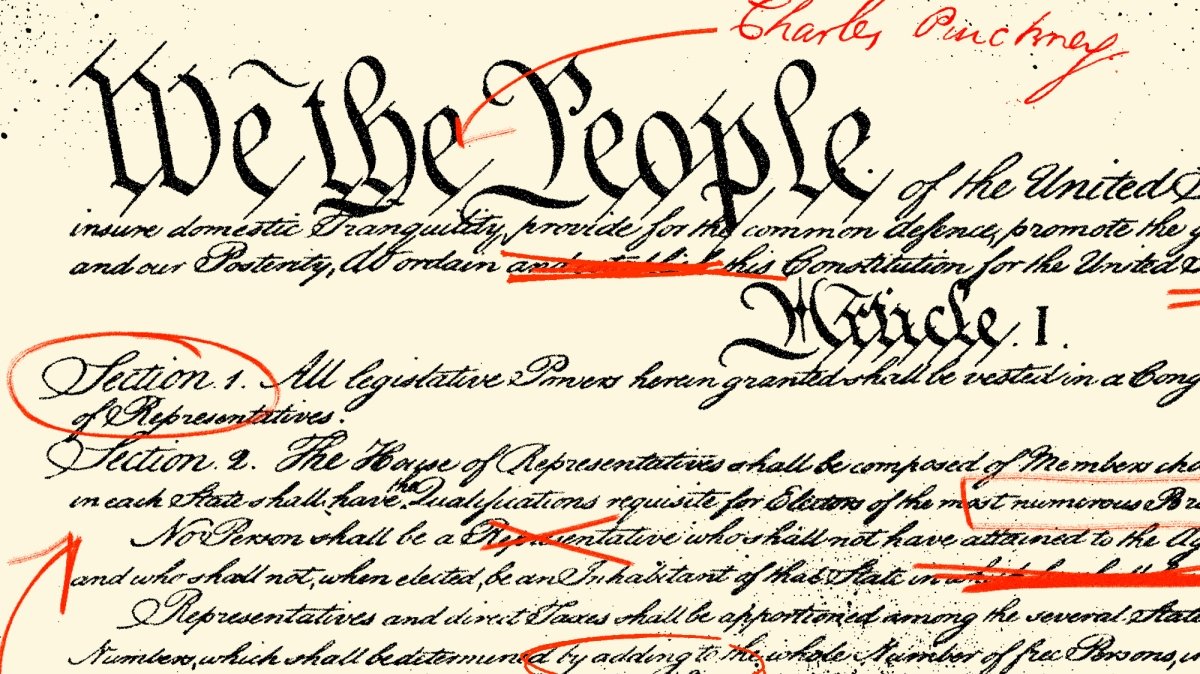 Charles Pinckney
We the People of the United
insure domestic Tranquility, provide for the common defence, promote the
and our Posterity, do ordain and establish this Constitution for the United
Article. I.
Section. 1. All legislative Powers herein granted shall be vested in a Cong
of Representatives.
Section. 2. The House of Representatives shall be composed of Members cho
in each State shall have the Qualifications requisite for Electors of the most numerous Br
No Person shall be a Representative who shall not have attained to the Ag
and who shall not, when elected, be an Inhabitant of that State in which he shall
Representatives and direct Taxes shall be apportioned among the several State
Numbers, which shall be determined by adding to the whole Number of free Persons, in